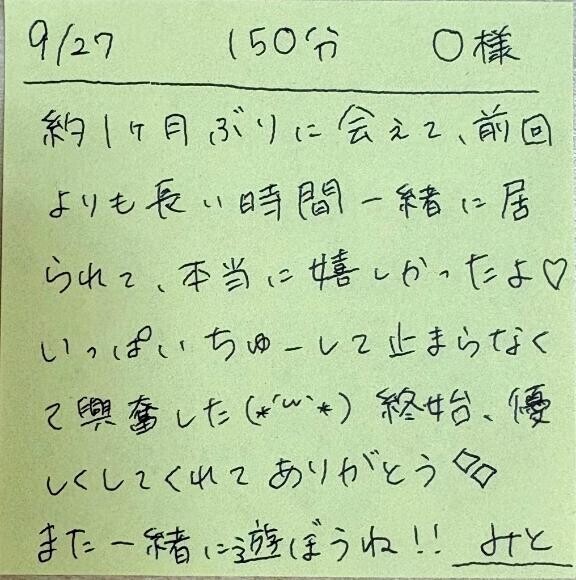 9/27 150分 〇様
約1ヶ月ぶりに会えて、前回
よりも長い時間一緒に居
られて、本当に嬉しかったよ♡
いっぱいちゅーして止まらなく
て興奮した(*´ω`*) 終始、優
しくしてくれてありがとう◇◇
また一緒に遊ぼうね!! みと